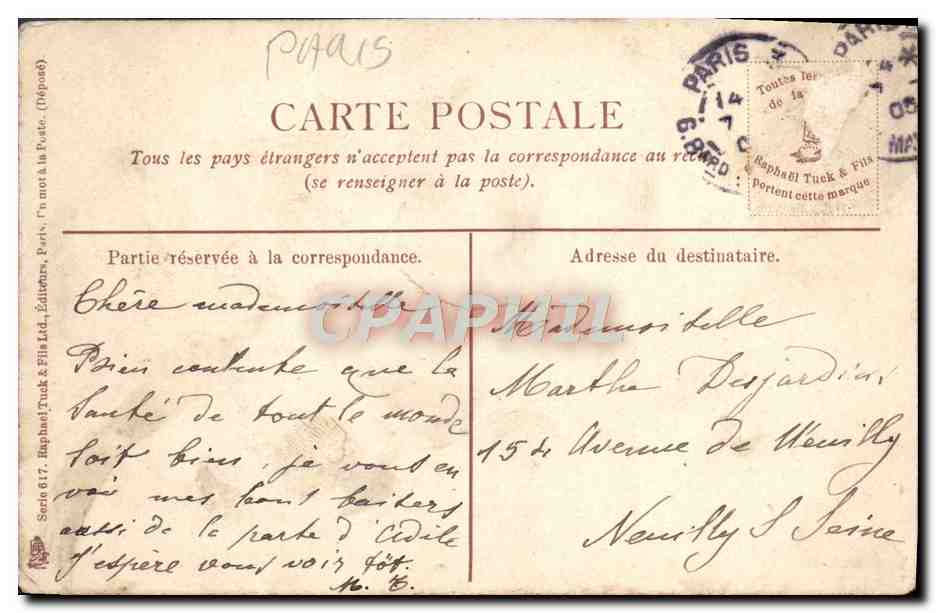 PARIS
CARTE POSTALE
Tous les pays étrangers n'acceptent pas la correspondance au recto
(se renseigner à la poste).
PARIS
14
7
PARIS
05
Toutes les
de la
Raphaël Tuck & Fils
portent cette marque
Partie réservée à la correspondance.
Chère mademoiselle
Bien contente que la
Santé de tout le monde
soit bien, je vous en
voi mes bons baisers
aussi de la parte d'Adile
J'espère vous voir tôt.
M. T.
Adresse du destinataire.
Mademoiselle
Marthe Desjardins
15 Avenue de Neuilly
Neuilly S Seine
CPAPHIL
Serie 617. Raphael Tuck & Fils Ltd., Éditeurs, Paris. Un mot à la Poste. (Déposé).